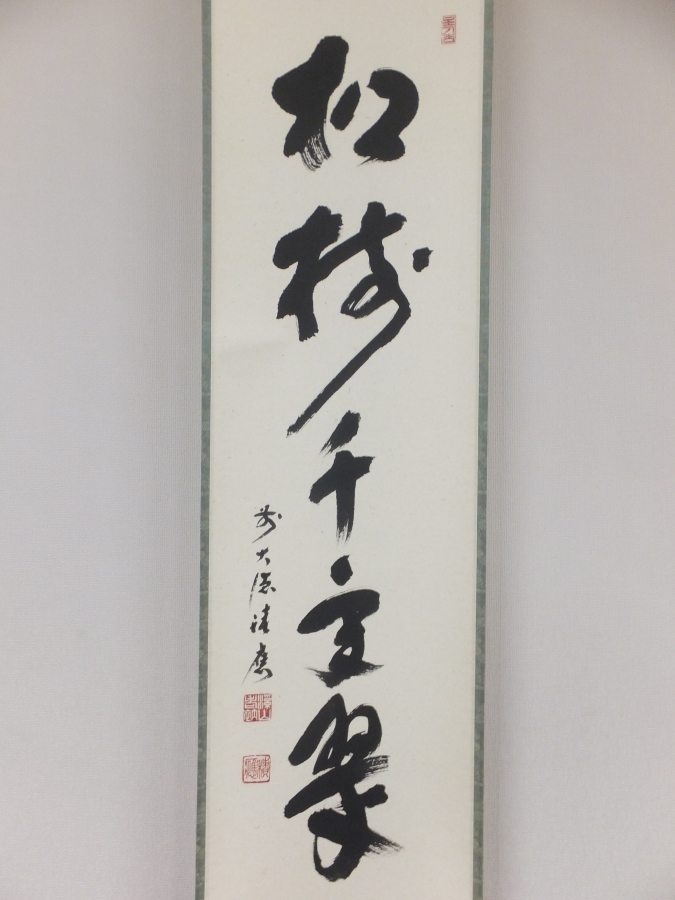 松樹千年翠
前大徳積應